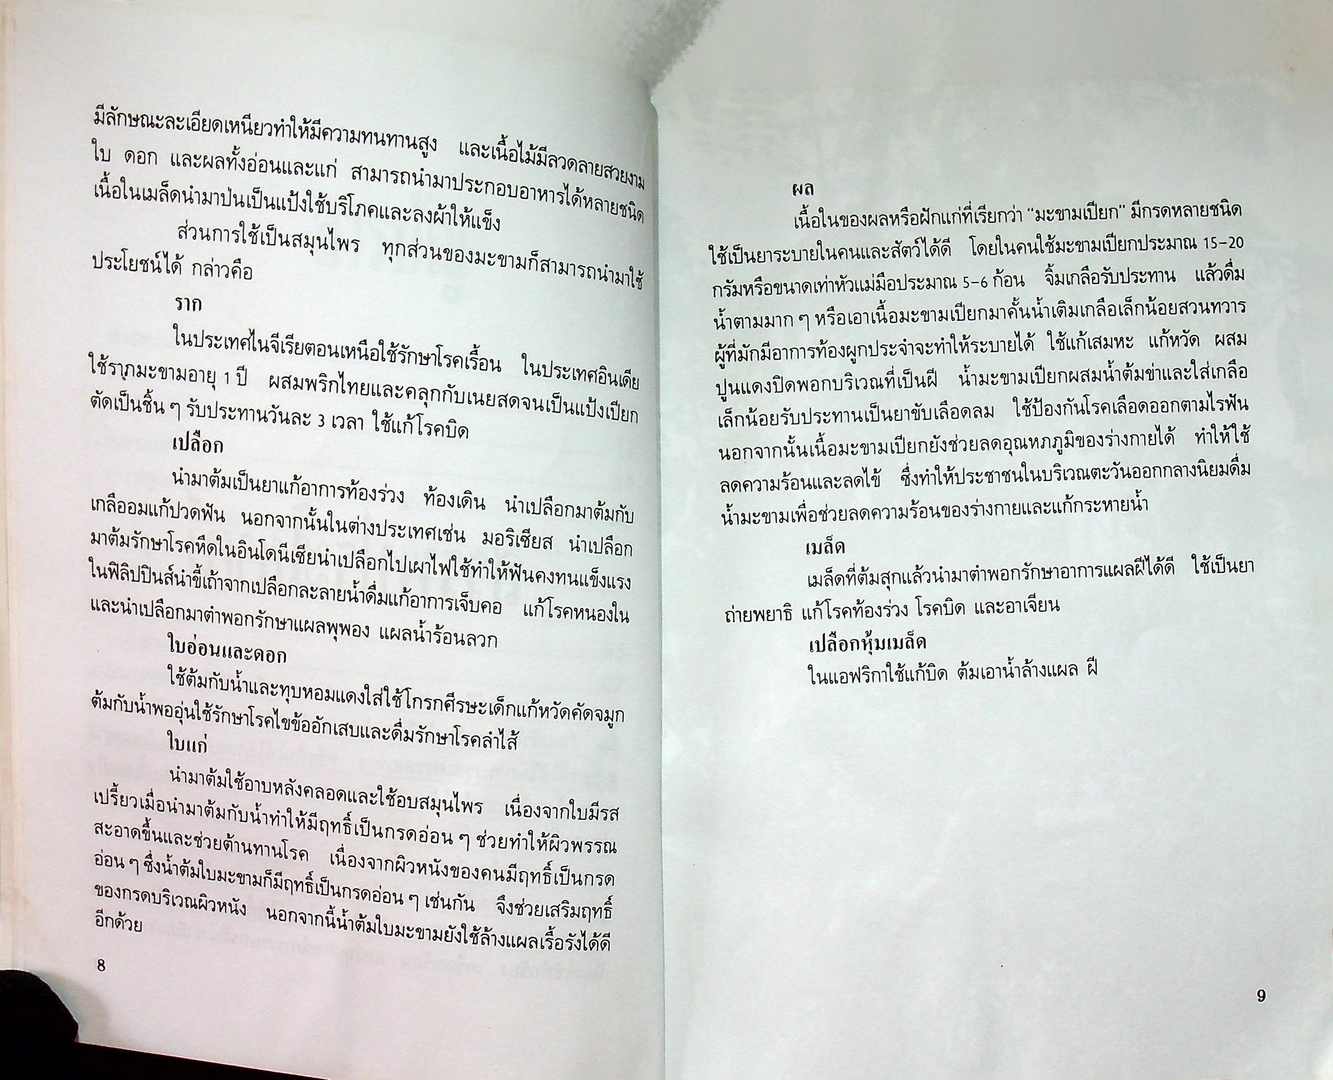 มีลักษณะละเอียดเหนียวทำให้มีความทนทานสูง และเนื้อไม้มีลวดลายสวยงาม
ใบ ดอก และผลทั้งอ่อนและแก่ สามารถนำมาประกอบอาหารได้หลายชนิด
เนื้อในเมล็ดนำมาป่นเป็นแป้งใช้บริโภคและลงผ้าให้แข็ง
ส่วนการใช้เป็นสมุนไพร ทุกส่วนของมะขามก็สามารถนำมาใช้
ประโยชน์ได้ กล่าวคือ
ราก
ในประเทศไนจีเรียตอนเหนือใช้รักษาโรคเรื้อน ในประเทศอินเดีย
ใช้รากมะขามอายุ 1 ปี ผสมพริกไทยและคลุกกับเนยสดจนเป็นแป้งเปียก
ตัดเป็นชิ้น ๆ รับประทานวันละ 3 เวลา ใช้แก้โรคบิด
เปลือก
นำมาต้มเป็นยาแก้อาการท้องร่วง ท้องเดิน นำเปลือกมาต้มกับ
เกลืออมแก้ปวดฟัน นอกจากนั้นในต่างประเทศเช่น มอริเซียส นำเปลือก
มาต้มรักษาโรคหืดในอินโดนีเซียนำเปลือกไปเผาไฟใช้ทำให้ฟันคงทนแข็งแรง
ในฟิลิปปินส์นำขี้เถ้าจากเปลือกละลายน้ำดื่มแก้อาการเจ็บคอ แก้โรคหนองใน
และนำเปลือกมาตำพอกรักษาแผลพุพอง แผลน้ำร้อนลวก
ใบอ่อนและดอก
ใช้ต้มกับน้ำและทุบหอมแดงใส่ใช้โกรกศีรษะเด็กแก้หวัดคัดจมูก
ต้มกับน้ำพออุ่นใช้รักษาโรคไขข้ออักเสบและดื่มรักษาโรคลำไส้
ใบแก่
นำมาต้มใช้อาบหลังคลอดและใช้อบสมุนไพร เนื่องจากใบมีรส
เปรี้ยวเมื่อนำมาต้มกับน้ำทำให้มีฤทธิ์เป็นกรดอ่อน ๆ ช่วยทำให้ผิวพรรณ
สะอาดขึ้นและช่วยต้านทานโรค เนื่องจากผิวหนังของคนมีฤทธิ์เป็นกรด
อ่อน ๆ ซึ่งน้ำต้มใบมะขามก็มีฤทธิ์เป็นกรดอ่อน ๆ เช่นกัน จึงช่วยเสริมฤทธิ์
ของกรดบริเวณผิวหนัง นอกจากนี้น้ำต้มใบมะขามยังใช้ล้างแผลเรื้อรังได้ดี
อีกด้วย
8
ผล
เนื้อในของผลหรือฝักแก่ที่เรียกว่า “มะขามเปียก” มีกรดหลายชนิด
ใช้เป็นยาระบายในคนและสัตว์ได้ดี โดยในคนใช้มะขามเปียกประมาณ 15-20
กรัมหรือขนาดเท่าหัวแม่มือประมาณ 5-6 ก้อน จิ้มเกลือรับประทาน แล้วดื่ม
น้ำตามมาก ๆ หรือเอาเนื้อมะขามเปียกมาคั้นน้ำเติมเกลือเล็กน้อยสวนทวาร
ผู้ที่มักมีอาการท้องผูกประจำจะทำให้ระบายได้ ใช้แก้เสมหะ แก้หวัด ผสม
ปูนแดงปิดพอกบริเวณที่เป็นฝี น้ำมะขามเปียกผสมน้ำต้มข่าและใส่เกลือ
เล็กน้อยรับประทานเป็นยาขับเลือดลม ใช้ป้องกันโรคเลือดออกตามไรฟัน
นอกจากนั้นเนื้อมะขามเปียกยังช่วยลดอุณหภูมิของร่างกายได้ ทำให้ใช้
ลดความร้อนและลดไข้ ซึ่งทำให้ประชาชนในบริเวณตะวันออกกลางนิยมดื่ม
น้ำมะขามเพื่อช่วยลดความร้อนของร่างกายและแก้กระหายน้ำ
เมล็ด
เมล็ดที่ต้มสุกแล้วนำมาตำพอกรักษาอาการแผลฝีได้ดี ใช้เป็นยา
ถ่ายพยาธิ แก้โรคท้องร่วง โรคบิด และอาเจียน
เปลือกหุ้มเมล็ด
ในแอฟริกาใช้แก้บิด ต้มเอาน้ำล้างแผล ฝี
9